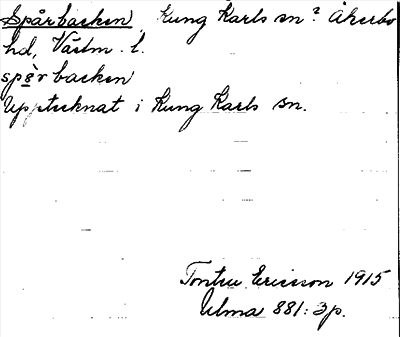 Spårbacken Kung Karls sn? Åkerbo
hd, Västm. l.
spårbacken
Upptecknat i Kung Karls sn.
Ericsson 1915
Ulma 881: 3 p.